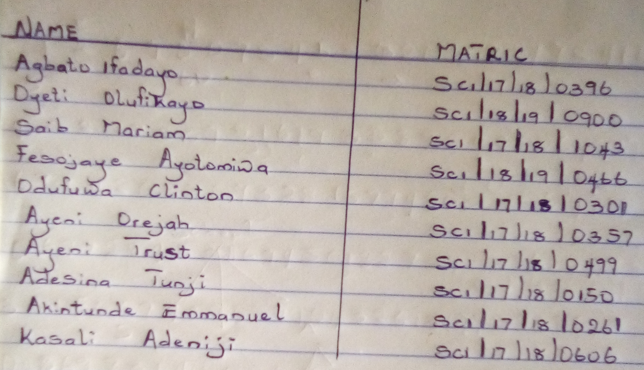 NAME MATRIC
Agbato Ifadayo Sci/17/18/0396
Oyeti Olufikayo Sci/18/19/0900
Saib Mariam Sci/17/18/1043
Fesojaye Ayotomiwa Sci/18/19/0466
Odufuwa Clinton Sci/17/18/0301
Ayeni Orejah Sci/17/18/0357
Ayeni Trust Sci/17/18/0499
Adesina Tunji Sci/17/18/0150
Akintunde Emmanuel Sci/17/18/0261
Kasali Adeniji Sci/17/18/0606